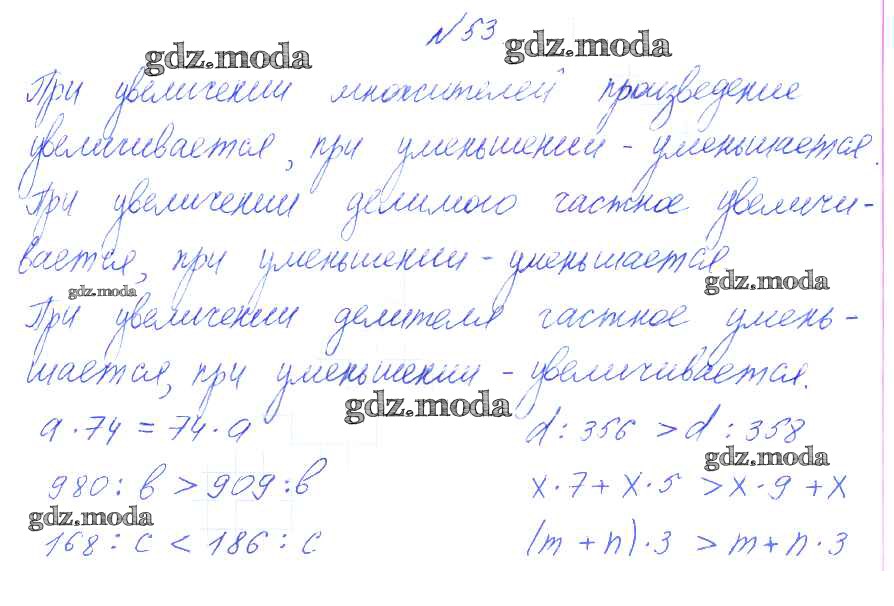 №53
gdz.moda gdz.moda
При увеличении множителей произведение
увеличивается, при уменьшении - уменьшается.
При увеличении делимого частное увеличи-
вается, при уменьшении - уменьшается
gdz.moda gdz.moda
При увеличении делителя частное умень-
шается, при уменьшении - увеличивается.
gdz.moda
a · 74 = 74 · a d : 356 > d : 358
gdz.moda
980 : в > 909 : в x · 7 + x · 5 > x · 9 + x
gdz.moda
168 : c < 186 : c (m + n) · 3 > m + n · 3